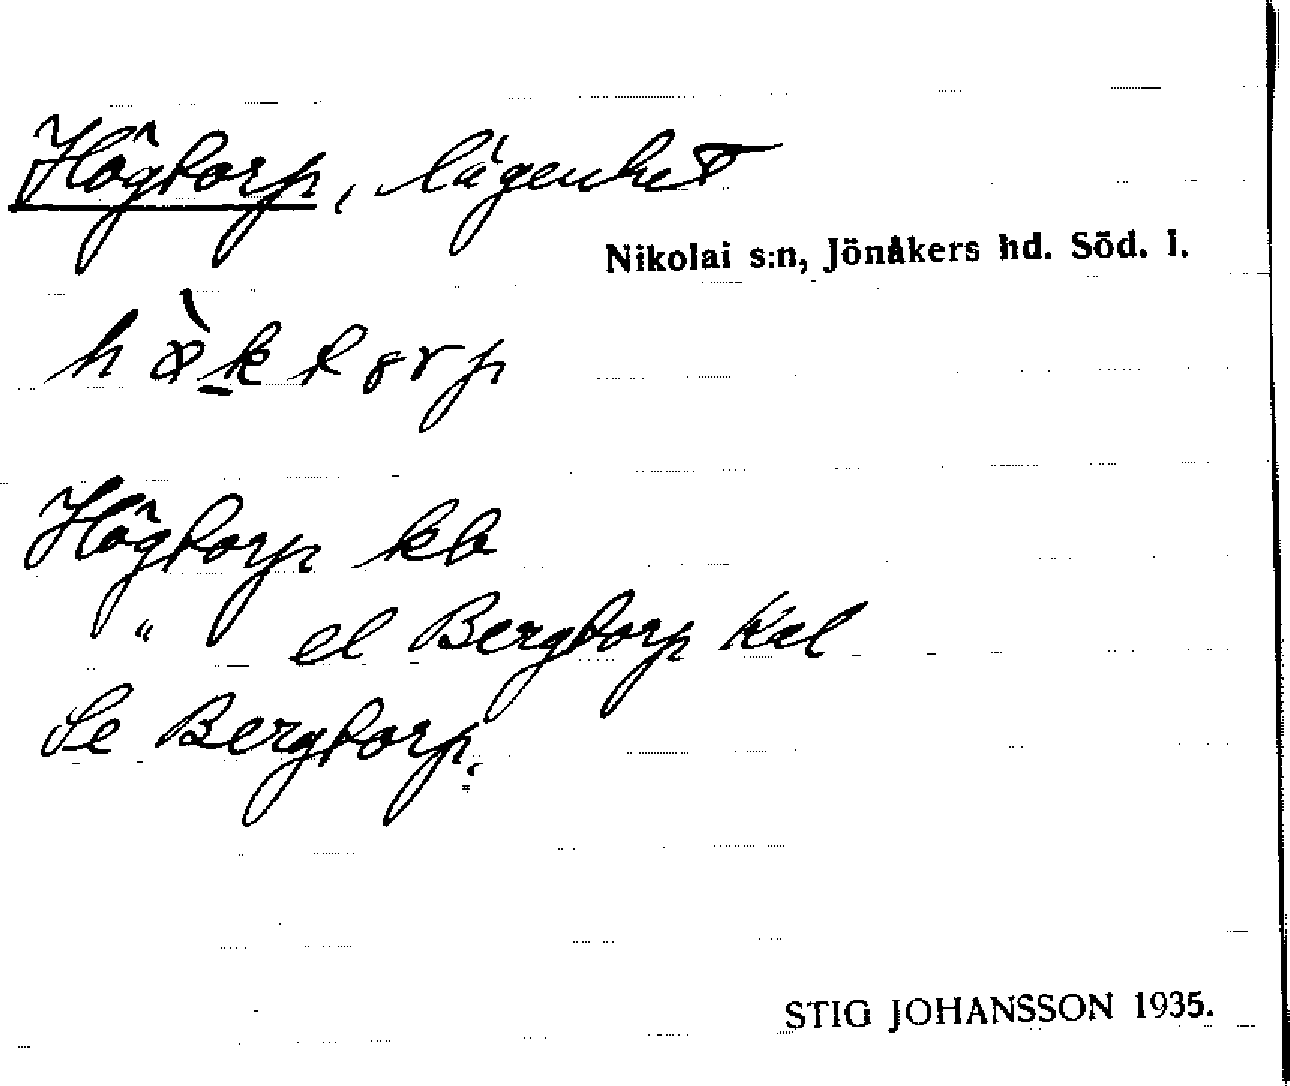 Högtorp, lägenhet
Nikolai s:n, Jönåkers hd. Söd. l.
Högtorp kb
" el Bergtorp Kal
Se Bergtorp.
STIG JOHANSSON 1935.